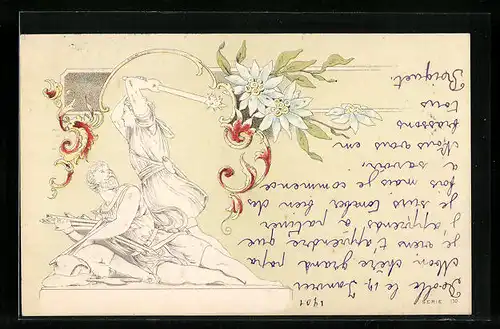 le 14 Janvier
1901
Mon chère grand papa
je viens t'apprendre que
j'apprends a patiner
je suis tomber bien des
fois mais je commence
a savoir,
Nous vous em
brassons
tous
SERIE 130